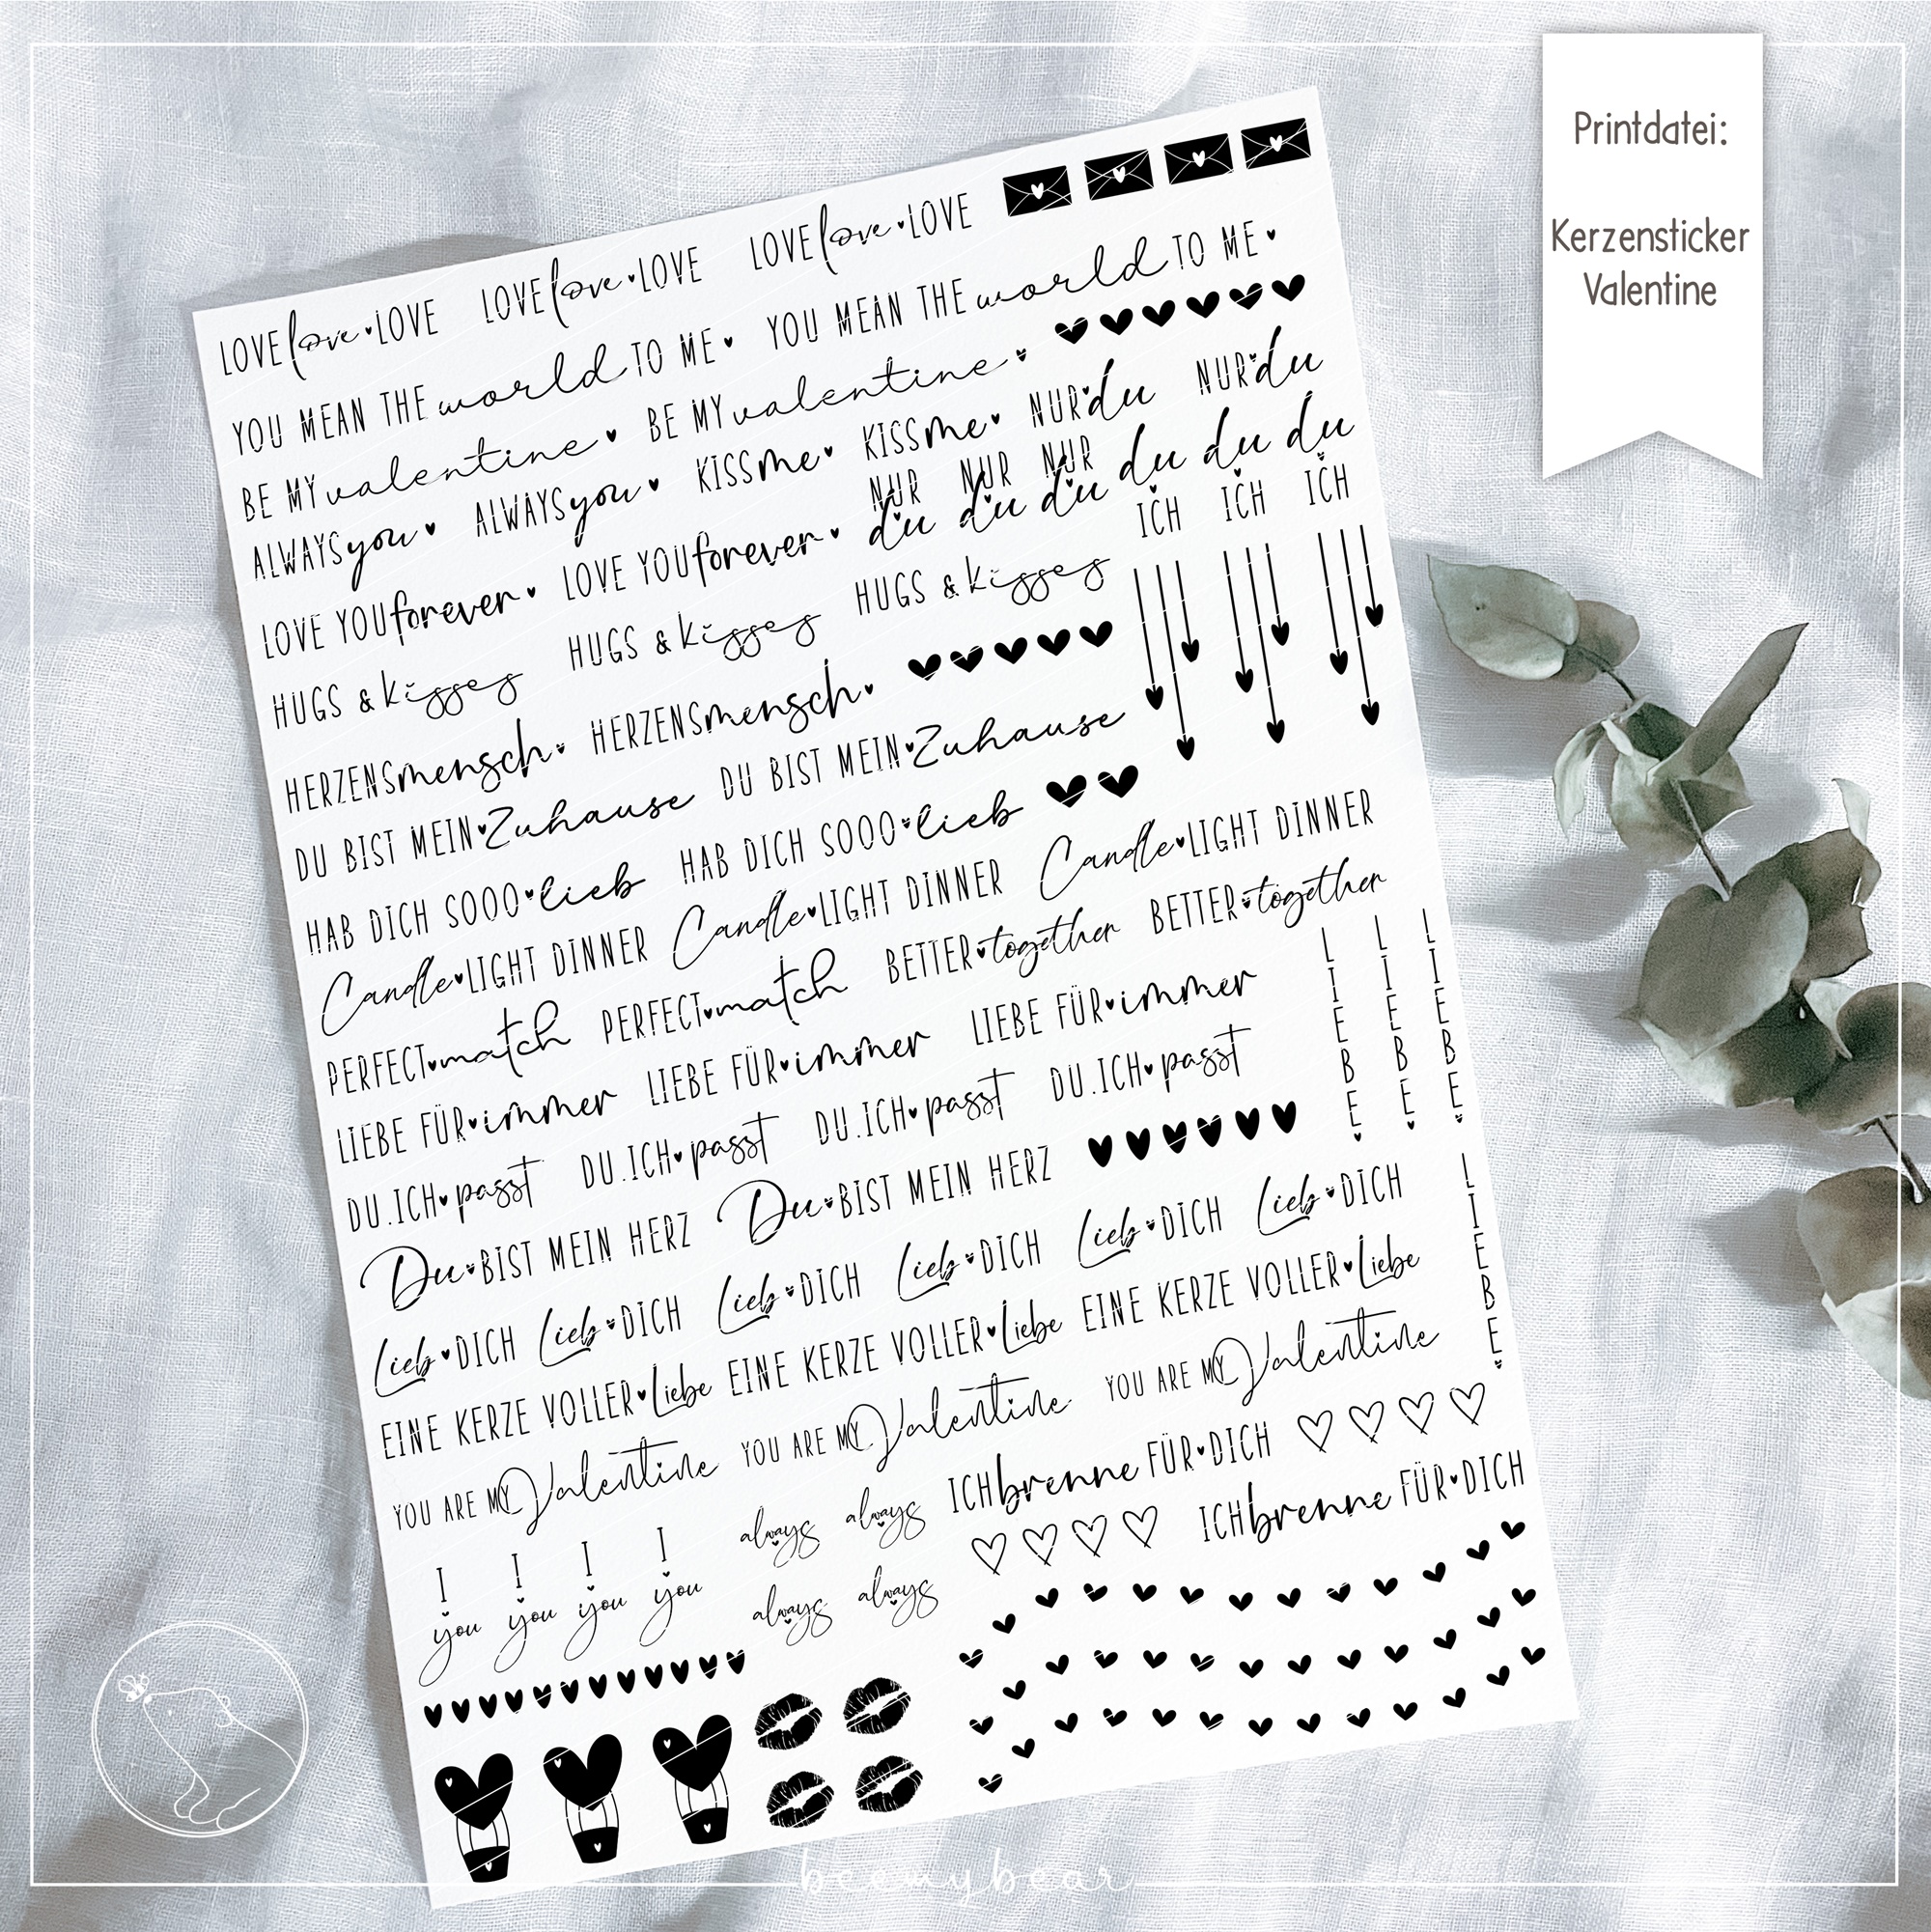 Printdatei:
Kerzensticker
Valentine
LOVE love LOVE LOVE love LOVE LOVE love LOVE
YOU MEAN THE world TO ME YOU MEAN THE world TO ME
BE MY valentine BE MY valentine
ALWAYS you ALWAYS you KISS me KISS me NUR du NUR du
LOVE YOU forever LOVE YOU forever
NUR NUR NUR
du du du
du du du
ICH ICH ICH
HUGS & kisses HUGS & kisses HUGS & kisses
HERZENSmensch HERZENSmensch
DU BIST MEIN Zuhause DU BIST MEIN Zuhause
HAB DICH SOOO lieb HAB DICH SOOO lieb
Candle LIGHT DINNER Candle LIGHT DINNER Candle LIGHT DINNER
PERFECT match PERFECT match BETTER together BETTER together
LIEBE FÜR immer LIEBE FÜR immer LIEBE FÜR immer
LIEBE LIEBE LIEBE
DU.ICH passt DU.ICH passt DU.ICH passt DU.ICH passt
Du BIST MEIN HERZ Du BIST MEIN HERZ
LIEBE
Lieb DICH Lieb DICH Lieb DICH Lieb DICH Lieb DICH Lieb DICH
EINE KERZE VOLLER Liebe EINE KERZE VOLLER Liebe EINE KERZE VOLLER Liebe
YOU ARE MY Valentine YOU ARE MY Valentine YOU ARE MY Valentine
ICH brenne FÜR DICH
ICH brenne FÜR DICH
I I I I
you you you you
always always
always always
beemybear